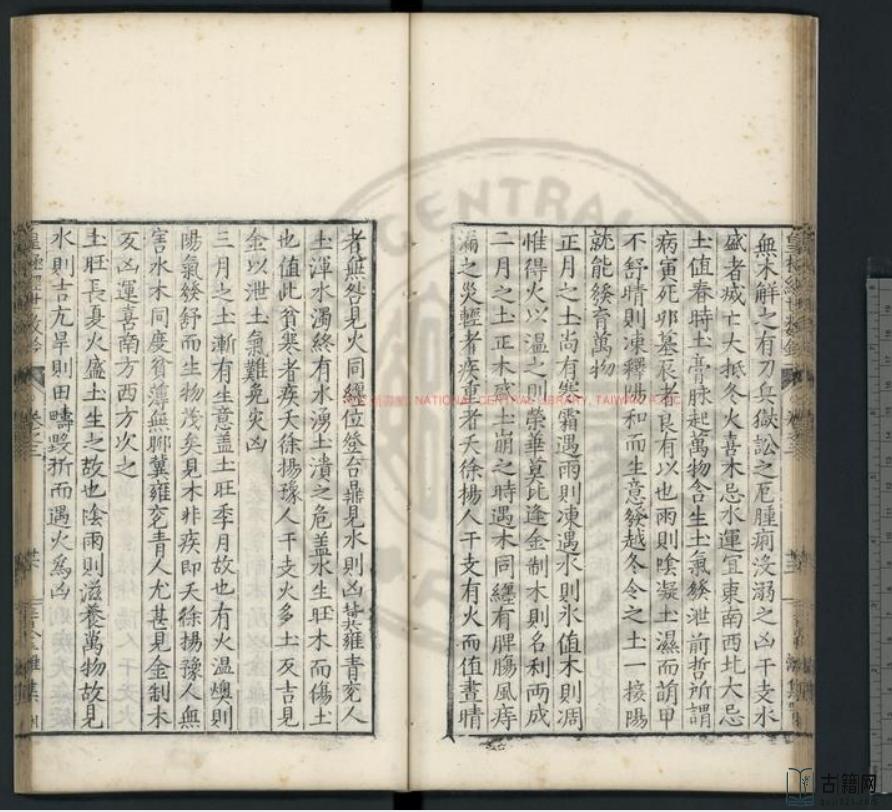 無木解之有刀兵獄訟之厄腫痢沒溺之凶干支水
盛者滅亡大抵冬火喜木忌水運宜東南西北大忌
土值春時土膏脉起萬物含生土氣發泄前哲所謂
病寅死卯墓辰者良有以也雨則陰凝土濕而萌甲
不舒晴則凍釋陽和而生意發越冬令之土一接陽
就能發育萬物
正月之土尚有寒霜遇雨則凍遇水則氷值木則凋
惟得火以溫之則榮華莫比逢金制木則名利両成
二月之土正木盛土崩之時遇木同纒有脾腸風痔
漏之災輕者疾重者夭徐揚人干支有火而值晝晴
者無咎見火同纒位登台鼎見水則凶冀雍青兖人
土渾水濁終有水湧土潰之危盖水生旺木而傷土
也值此貧寒者疾夭徐揚豫人干支火多土反吉見
金以泄土氣難免災凶
三月之土漸有生意盖土旺季月故也有火溫燠則
陽氣發舒而生物茂矣見木非疾即夭徐揚豫人無
害水木同度貧薄無聊冀雍兖青人尤甚見金制木
反凶運喜南方西方次之
土旺長夏火盛土生之故也陰雨則滋養萬物故見
水則吉亢旱則田疇毀折而遇火為凶
卷之三
NATIONAL CENTRAL LIBRARY, TAIWAN, R.O.C.
古籍网